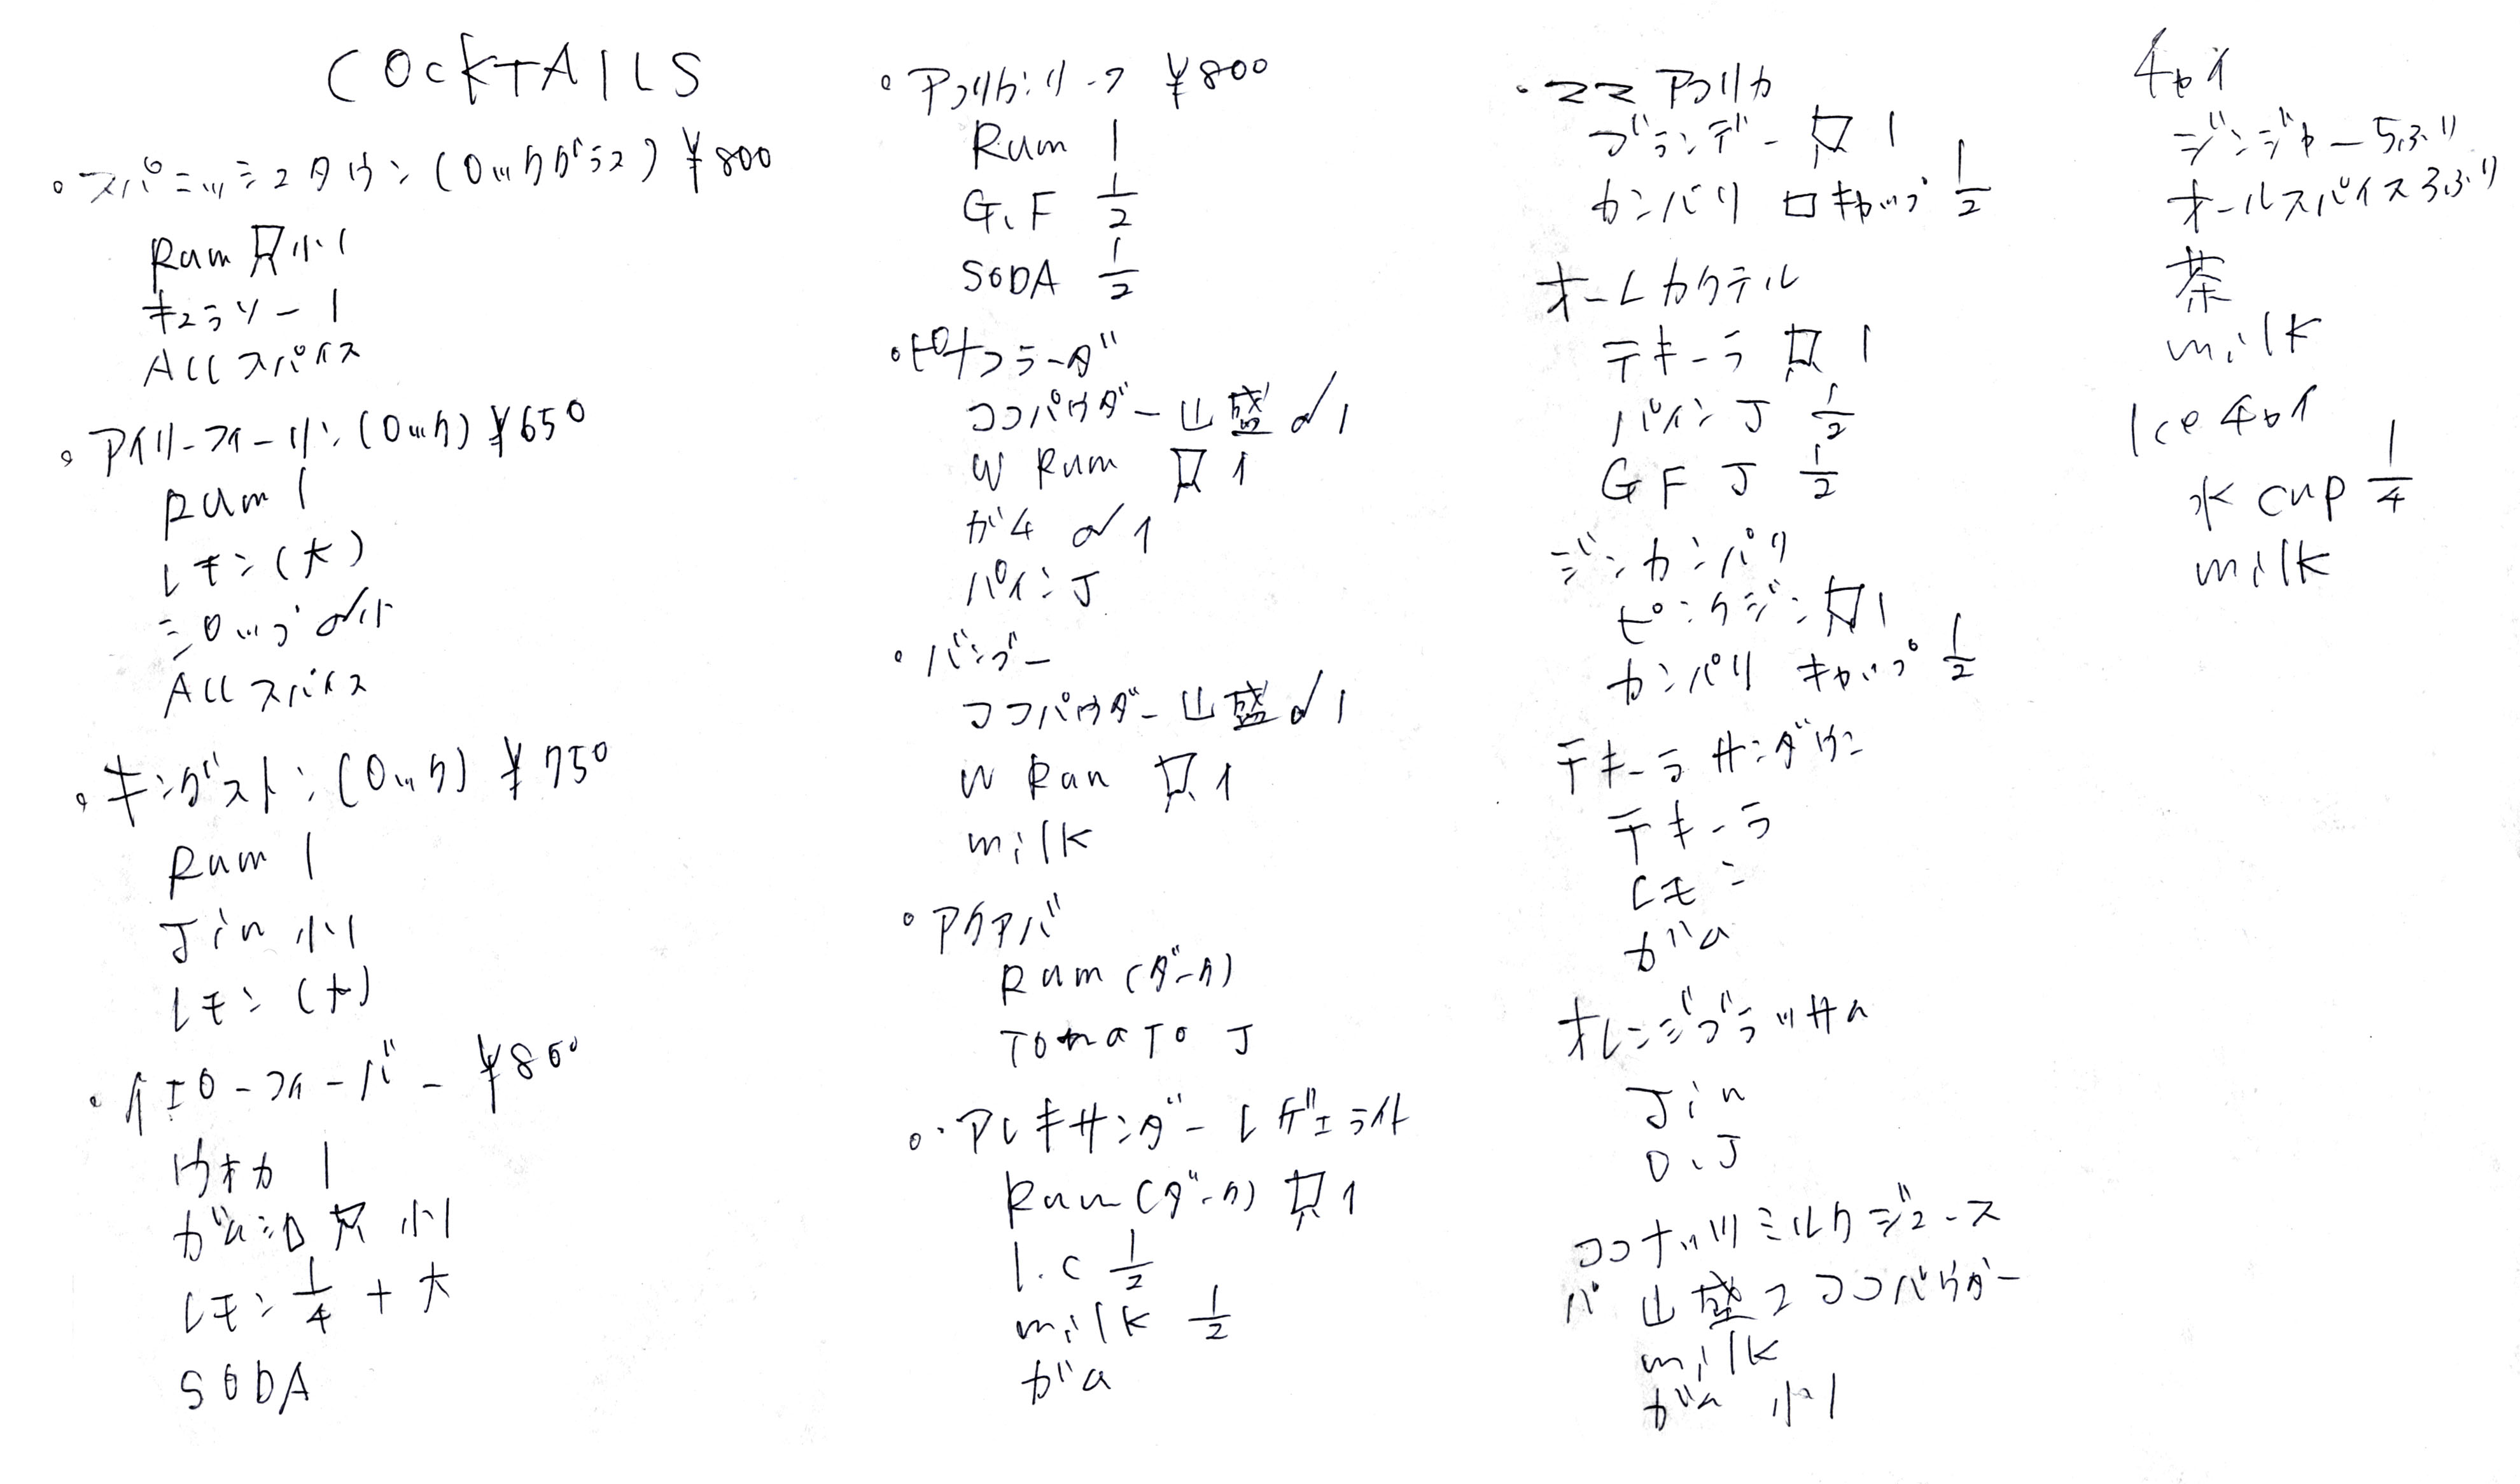 COCKTAILS
・スパニッシュタウン (ロックグラス) ¥800
Rum 小1
キュラソー 1
ALLスパイス
・アイリーフィーリン (ロック) ¥650
Rum 1
レモン (大)
シロップ 小
ALLスパイス
・キングストン (ロック) ¥750
Rum 1
Jin 小1
レモン (大)
・イエローフィーバー ¥800
ウオカ 1
ガムシロ 小1
レモン 1/4 + 大
SODA
・アフリカンリーフ ¥800
Rum 1
G.F 1/2
SODA 1/2
・ピナコラーダ
ココパウダー 山盛 1
W Rum 1
ガム 1
パインJ
・バンブー
ココパウダー 山盛 1
W Rum 1
milk
・アクアバ
Rum (ダーク)
TomaTo J
・アレキサンダーレゲエライト
Rum (ダーク) 1
I.C 1/2
milk 1/2
ガム
・ママアフリカ
ブランデー 1
カンパリ キャップ 1/2
オームカクテル
テキーラ 1
パインJ 1/2
GF J 1/2
ジンカンパリ
ピンクジン 1
カンパリ キャップ 1/2
テキーラサンダウン
テキーラ
レモン
ガム
オレンジブラッサム
Jin
O.J
ココナッツミルクジュース
山盛2 ココパウダー
milk
ガム 小1
チャイ
ジンジャー 5ふり
オールスパイス 3ふり
茶
milk
Ice チャイ
水 cup 1/4
milk